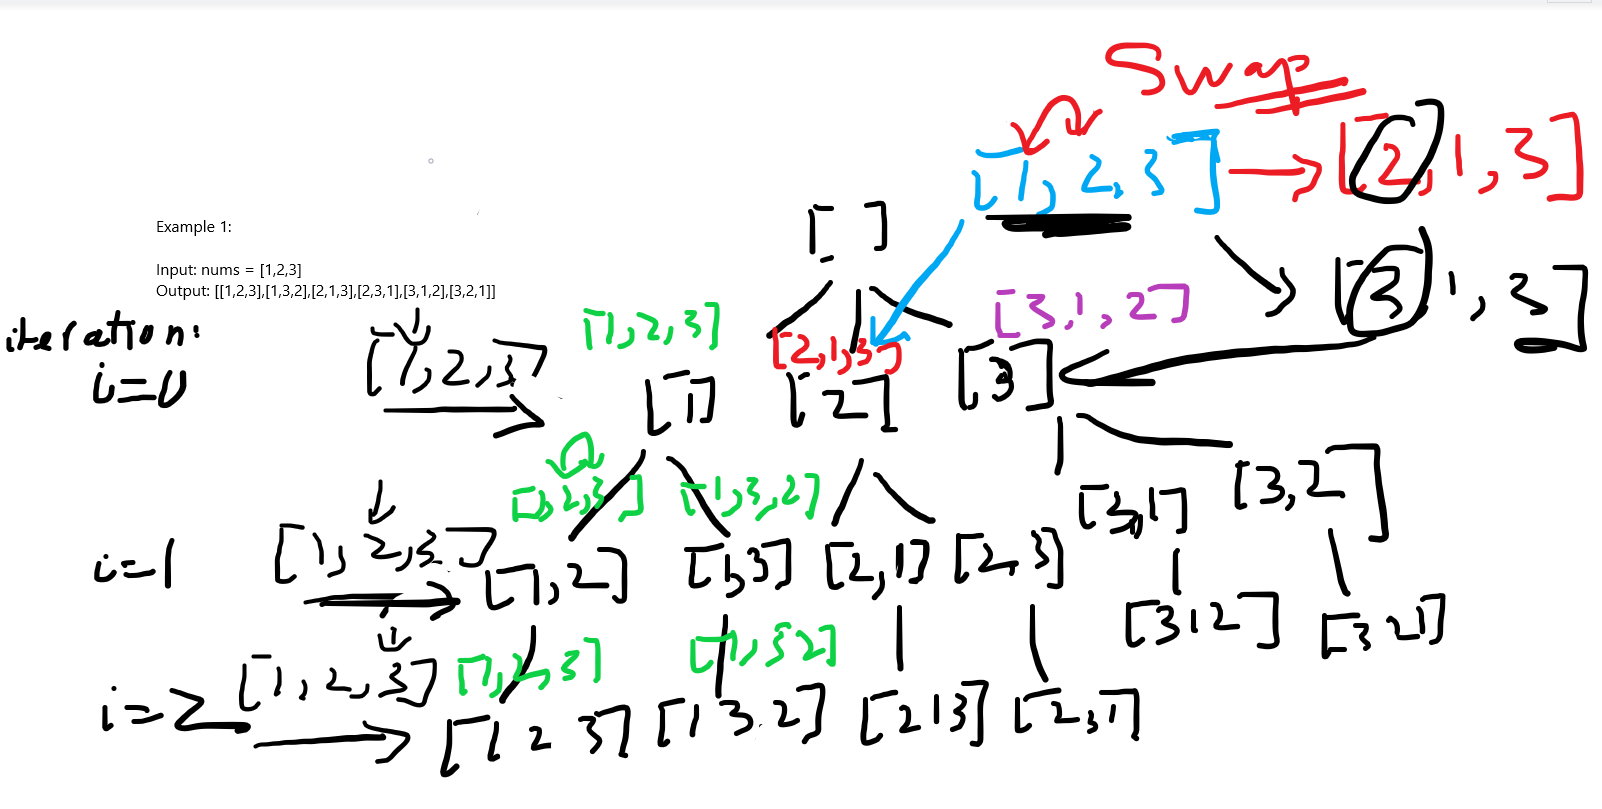 Swap
[1, 2, 3] [2, 1, 3]
[ ]
Example 1:
Input: nums = [1,2,3]
Output: [[1,2,3],[1,3,2],[2,1,3],[2,3,1],[3,1,2],[3,2,1]]
[3, 1, 3]
[3, 1, 2]
iteration:
i=0
[1, 2, 3] [1, 2, 3] [2, 1, 3]
[1] [2] [3]
[1, 2, 3] [1, 3, 2] [3, 1] [3, 2]
i=1
[1, 2, 3] [1, 2] [1, 3] [2, 1] [2, 3]
[3 1 2] [3 2 1]
[1, 2, 3] [1, 3 2]
i=2
[1, 2, 3] [1 2 3] [1 3 2] [2 1 3] [2, 1]